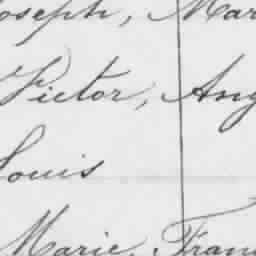 Joseph, Mar
Victor, Ang
Louis
Marie, Fran